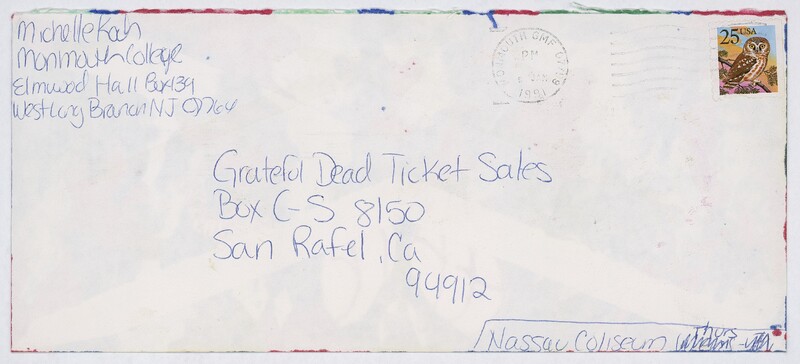 Michelle Koch
Monmouth College
Elmwood Hall Box 439
West Long Branch NJ 07764
MONMOUTH GMF
PM
1991
25 USA
Grateful Dead Ticket Sales
Box C-S 8150
San Rafel, Ca
94912
Nassau Coliseum Thurs